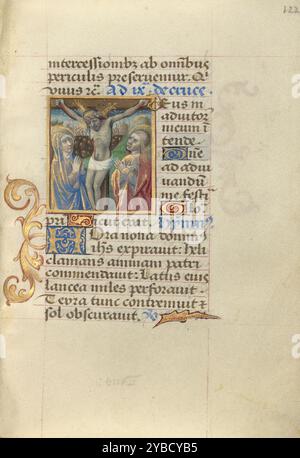 122
intercessionibz ab omnibus
periculis preseruemur. Q
viuus rc̄. Ad ix. de cruce.
Deus in
adiutor
meum i
tende.
Dn̄e
ad adiu
uandū
me festi
Glo
pri sicut erat. Hympnus
Hora nona domin
ihs expirauit: heli
clamans animam patri
commendauit: Latus eius
lancea miles perforauit
Terra tunc contremuit &
sol obscurauit.
alamy
Image ID: 2YBCYB5
www.alamy.com